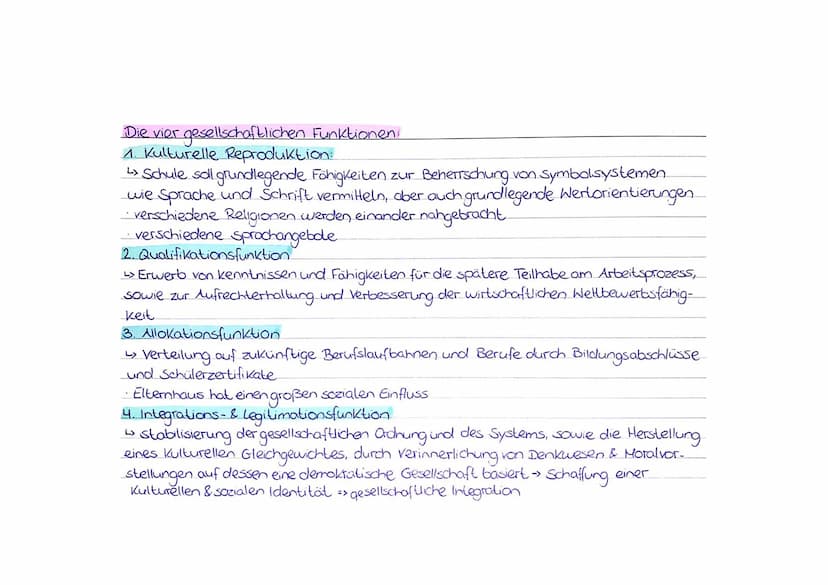 Die vier gesellschaftlichen Funktionen:
1. Kulturelle Reproduktion:
↳ Schule soll grundlegende Fähigkeiten zur Beherrschung von Symbolsystemen
wie Sprache und Schrift vermitteln, aber auch grundlegende Wertorientierungen
· verschiedene Religionen werden einander nahgebracht
· verschiedene Sprachangebote
2. Qualifikationsfunktion
↳ Erwerb von Kenntnissen und Fähigkeiten für die spätere Teilhabe am Arbeitsprozess,
sowie zur Aufrechterhaltung und Verbesserung der wirtschaftlichen Wettbewerbsfähig-
keit
3. Allokationsfunktion
↳ Verteilung auf zukünftige Berufslaufbahnen und Berufe durch Bildungsabschlüsse
und Schülerzertifikate
· Elternhaus hat einen großen sozialen Einfluss
4. Integrations- & Legitimationsfunktion
↳ Stabilisierung der gesellschaftlichen Ordnung und des Systems, sowie die Herstellung
eines kulturellen Gleichgewichtes, durch Verinnerlichung von Denkwesen & Moralvor-
stellungen auf dessen eine demokratische Gesellschaft basiert → Schaffung einer
kulturellen & sozialen Identität => gesellschaftliche Integration